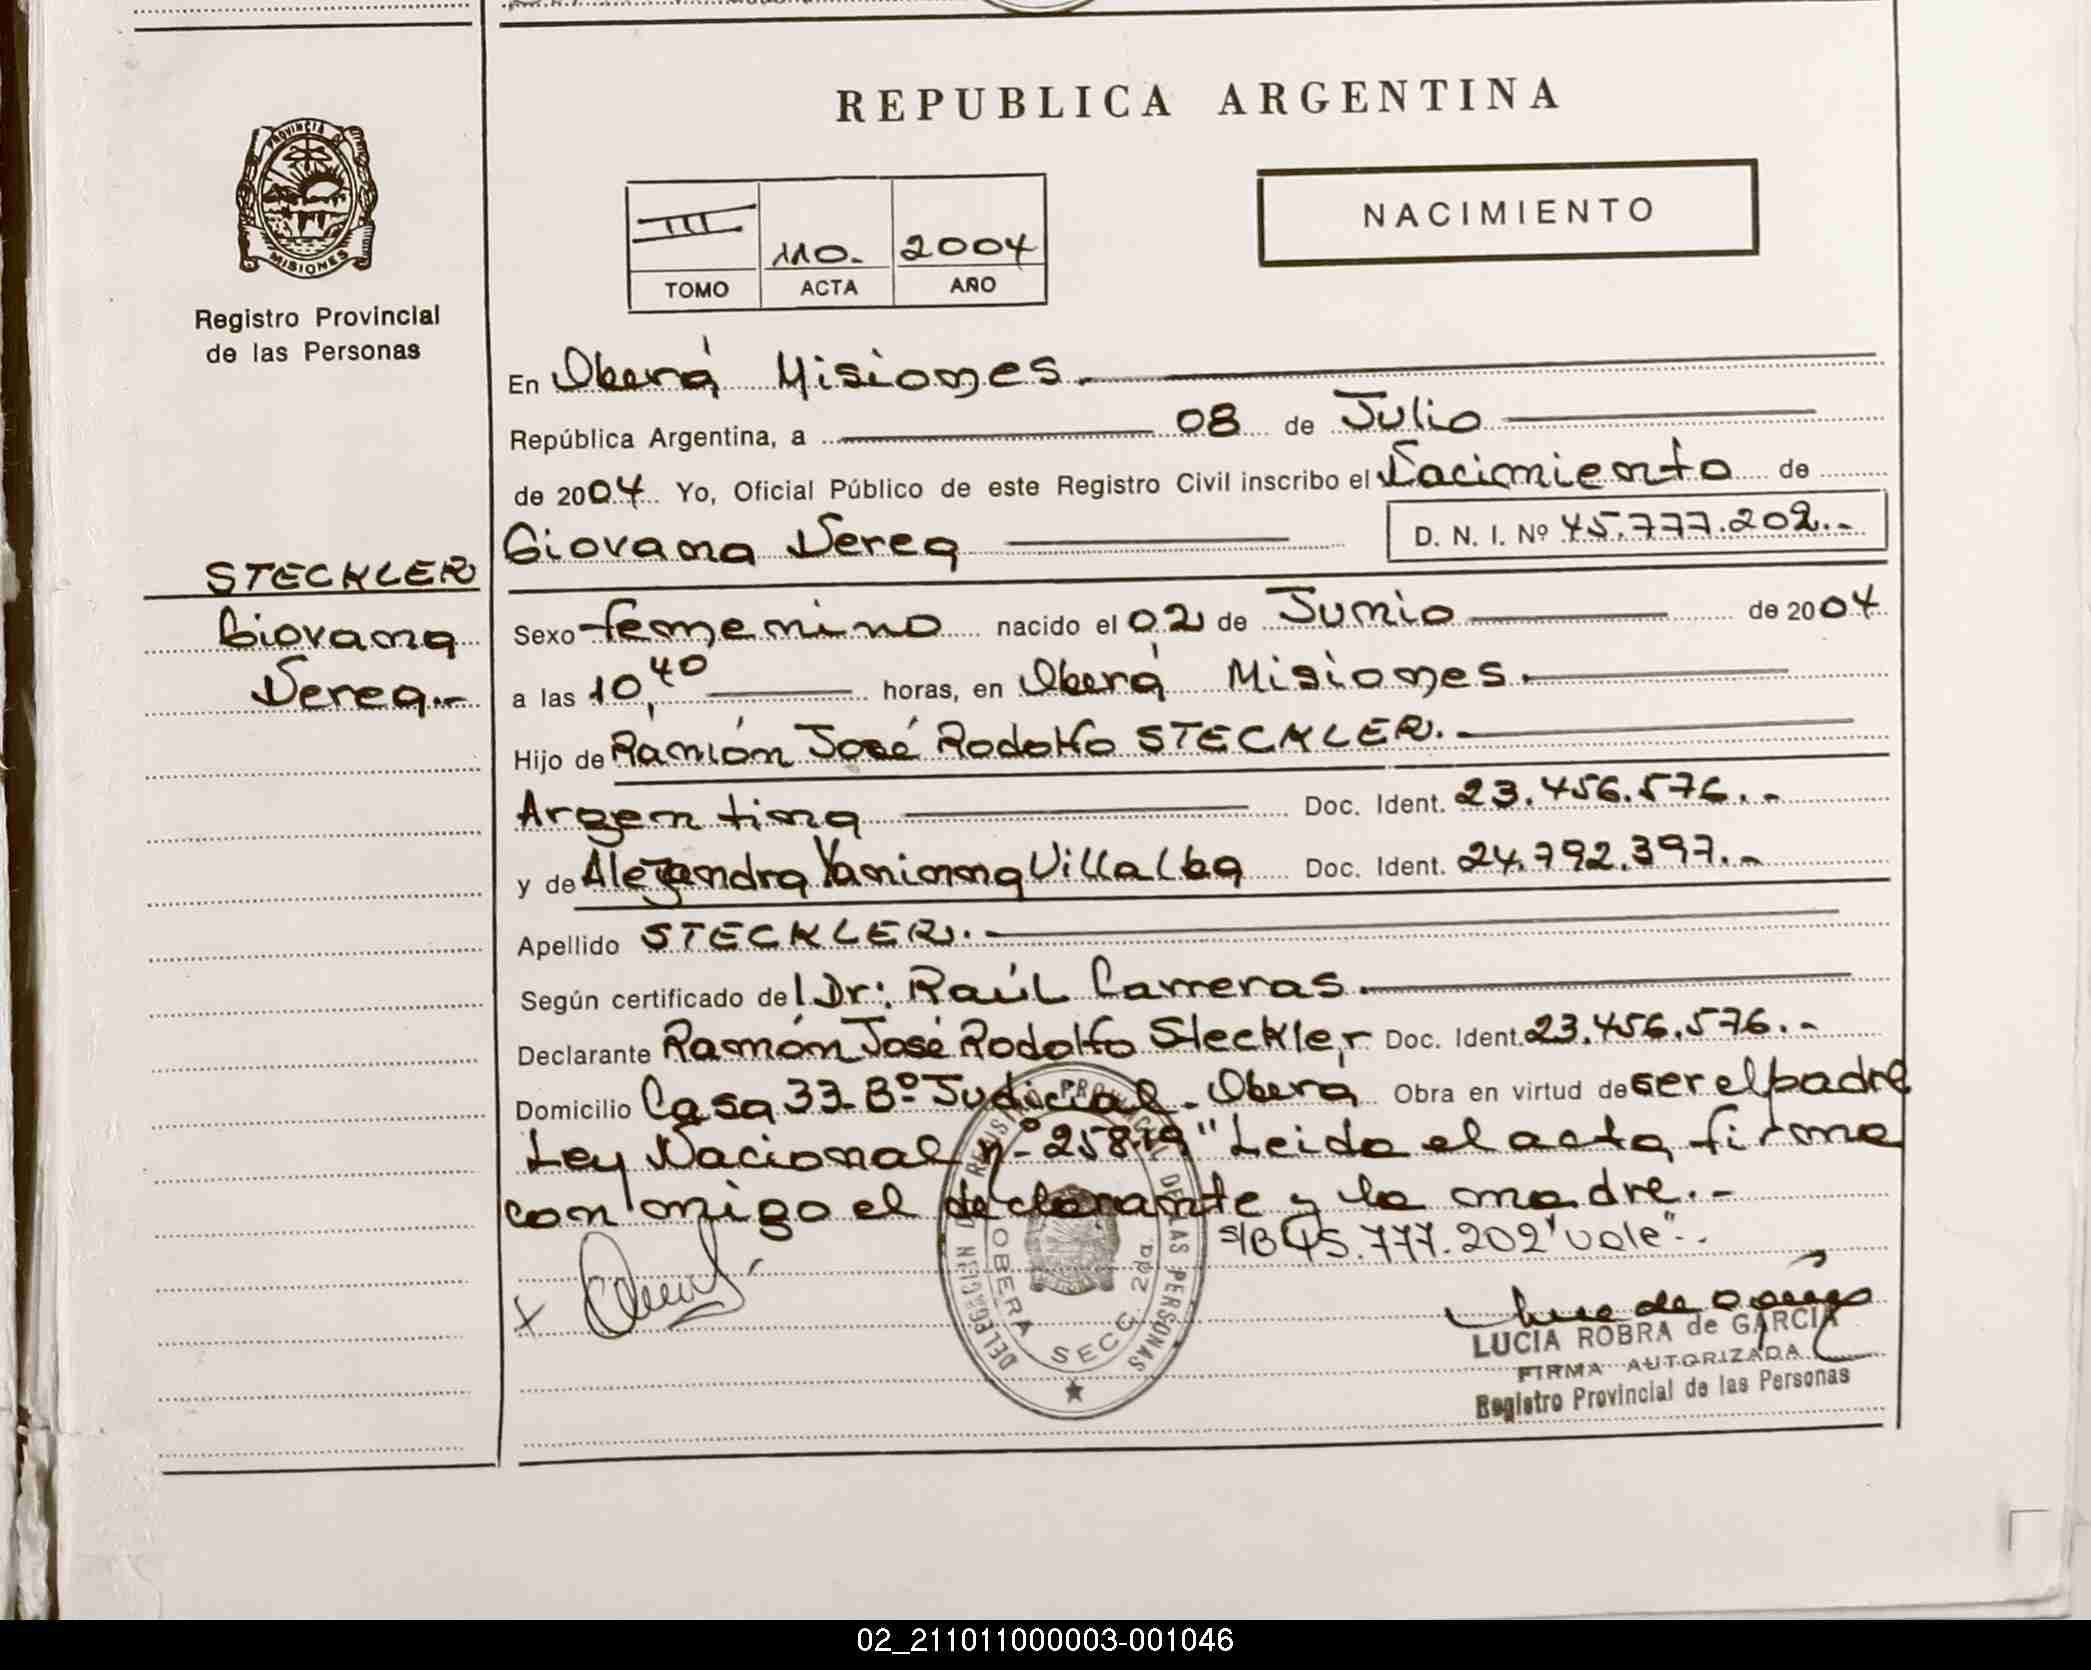 REPUBLICA ARGENTINA
PROVINCIA DE
MISIONES
Registro Provincial
de las Personas
III 110.- 2004
TOMO ACTA AÑO
NACIMIENTO
En Oberá Misiones.
República Argentina, a 08 de Julio
de 2004 Yo, Oficial Público de este Registro Civil inscribo el Nacimiento de
Giovana Nerea D. N. I. Nº 45.777.202.-
STECKLER
Giovana
Nerea.-
Sexo femenino nacido el 02 de Junio de 2004
a las 10,40 horas, en Oberá Misiones.
Hijo de Ramón José Rodolfo STECKLER.
Argentina Doc. Ident. 23.456.576.-
y de Alejandra Yaninna Villalba Doc. Ident. 24.792.397.-
Apellido STECKLER.-
Según certificado del Dr: Raúl Carreras.
Declarante Ramón José Rodolfo Steckler Doc. Ident. 23.456.576.-
Domicilio Casa 33-Bº Judicial-Oberá Obra en virtud de ser el padre
Ley Nacional nº 25819 "Leida el acta firma
conmigo el declarante y la madre.-
s/B 45.777.202 "vale".-
DELEGACION REGISTRO PROVINCIAL DE LAS PERSONAS
OBERA SECC. 2da.
LUCIA ROBRA de GARCIA
FIRMA AUTORIZADA
Registro Provincial de las Personas
02_211011000003-001046